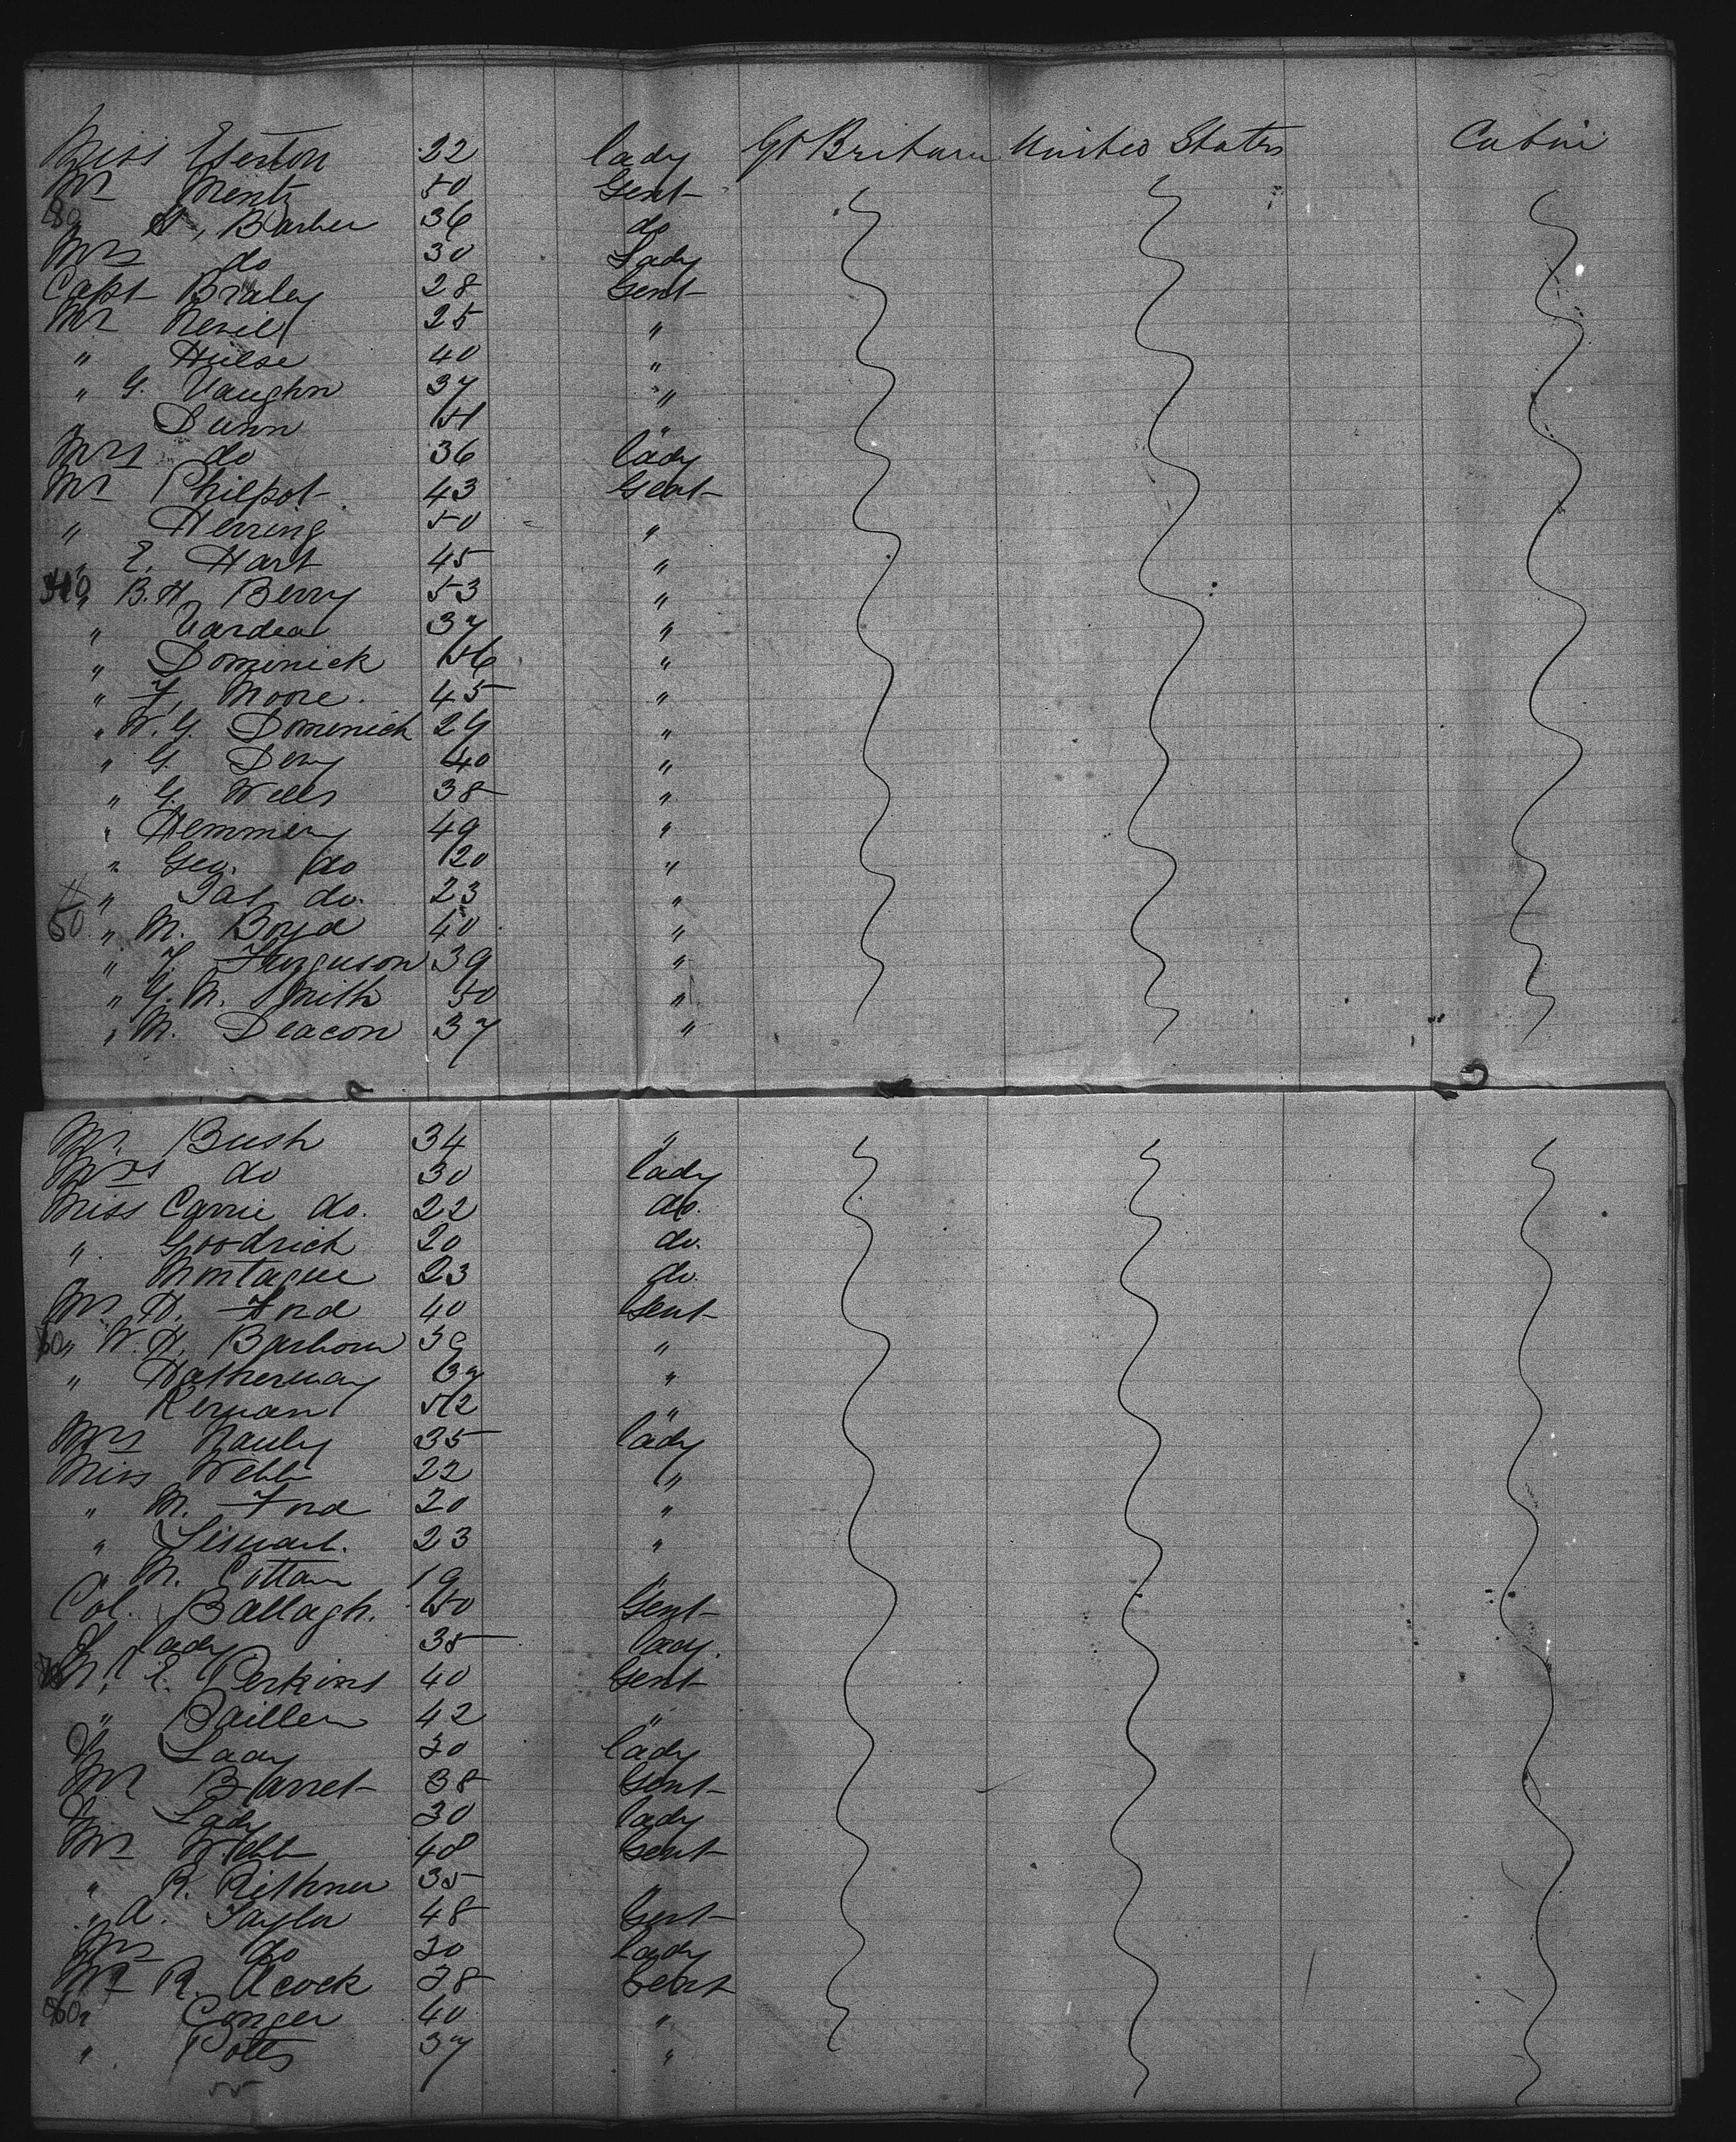 Miss Yeston 22 lady Gt Britain United States Cabin
Mr Mentz 50 Gent
H, Barber 36 do
Mrs do 30 Lady
Capt Braley 28 Gent
Mr Nevill 25 "
" Hulse 40 "
" G. Vaughn 37 "
" Dunn 51 "
Mrs do 36 lady
Mr Philpot 43 Gent
" Herring 50 "
" E. Hart 45 "
" B. H. Berry 53 "
" 37 "
" Dominick 56 "
" F, Moore. 45 "
" W. G. Dominick 29 "
" G. Deny 40 "
" G. Wells 38 "
" Hemmeny 49 "
" Geo. do 20 "
" Jas do. 23 "
50 " M. Boyd 40 "
" J. Furguson 39 "
" G. M. Smith 50 "
" M. Deacon 37 "
Mr. Bush 34 "
Mrs do 30 lady
Miss Carrie do. 22 do.
" Goodrich 20 do.
" Montague 23 do.
Mr H. Ford 40 Gent
60 " W. H. Barbour 39 "
" Hatherway 37 "
" Kerwan 52 "
Mrs Nauly 35 lady
Miss Webb 22 "
" M. Ford 20 "
" 23 "
" M. Cottam 19 "
Col. Ballagh. 50 Gent
& lady 35 lady.
Mr. E. Perkins 40 Gent
" 42 "
& Lady 30 lady
Mr Barret 38 Gent
& Lady 30 lady
Mr Webb 48 Gent
" R. Rithner 35 "
" A. Taylor 48 Gent
Mrs do 30 lady
Mr R. Acock 38 Gent
" Conger 40 "
" Potts 37 "